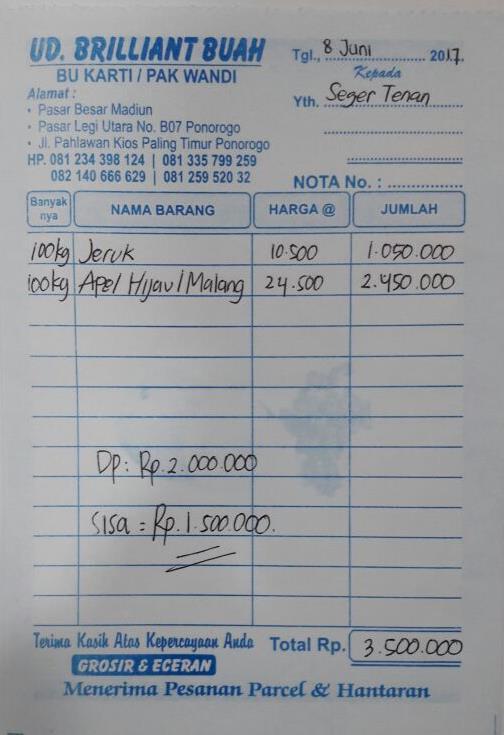 UD. BRILLIANT BUAH
BU KARTI / PAK WANDI
Alamat :
• Pasar Besar Madiun
• Pasar Legi Utara No. B07 Ponorogo
• Jl. Pahlawan Kios Paling Timur Ponorogo
HP. 081 234 398 124 | 081 335 799 259
082 140 666 629 | 081 259 520 32
Tgl., 8 Juni 2017.
Kepada
Yth. Seger Tenan
NOTA No. :
Banyak nya NAMA BARANG HARGA @ JUMLAH
100kg Jeruk 10.500 1.050.000
100kg Apel Hijau / Malang 24.500 2.450.000
DP : Rp. 2.000.000
Sisa = Rp. 1.500.000.
Terima Kasih Atas Kepercayaan Anda Total Rp. 3.500.000
GROSIR & ECERAN
Menerima Pesanan Parcel & Hantaran